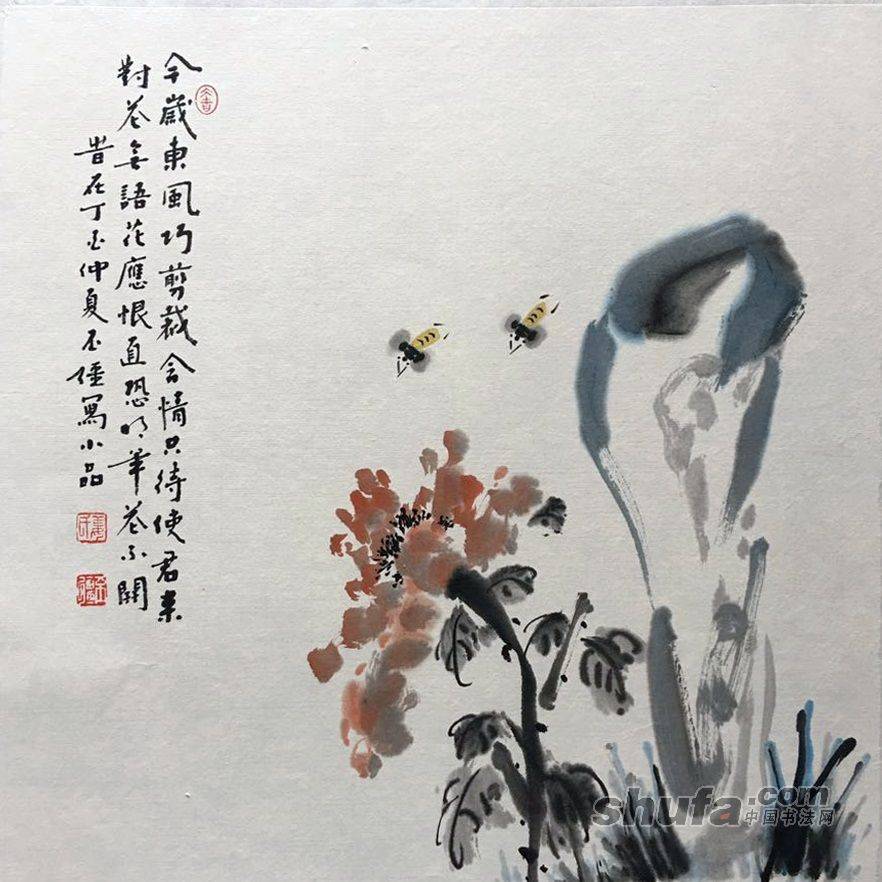 今歲東風巧剪裁含情只待使君来
對花無語花應恨直恐明年花不開
時在丁酉仲夏不僵寫小品
shufa.com
中国书法网